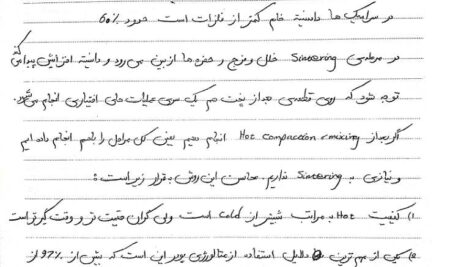 در سرامیک ها دانسیته خام کمتر از فلزات است حدود 60%
در مرحله‌ی Sintering خلل و فرج و حفره ها از بین می رود و دانسیته افزایش پیدا می کند
توجه شود که روی قطعه‌ی بعد از پخت هم یک سری عملیات های اختیاری انجام می شود.
اگر بعد از mixing، Hot compaction انجام دهیم یعنی کل مراحل را باهم انجام داده ایم
و نیازی به Sintering نداریم. محاسن این روش به قرار زیر است:
1) کیفیت Hot به مراتب بیشتر از cold است ولی گران قیمت تر و وقت گیرتر است
2) یکی از مهم ترین دلایل استفاده از متالورژی پودر این است که بیش از 97% از